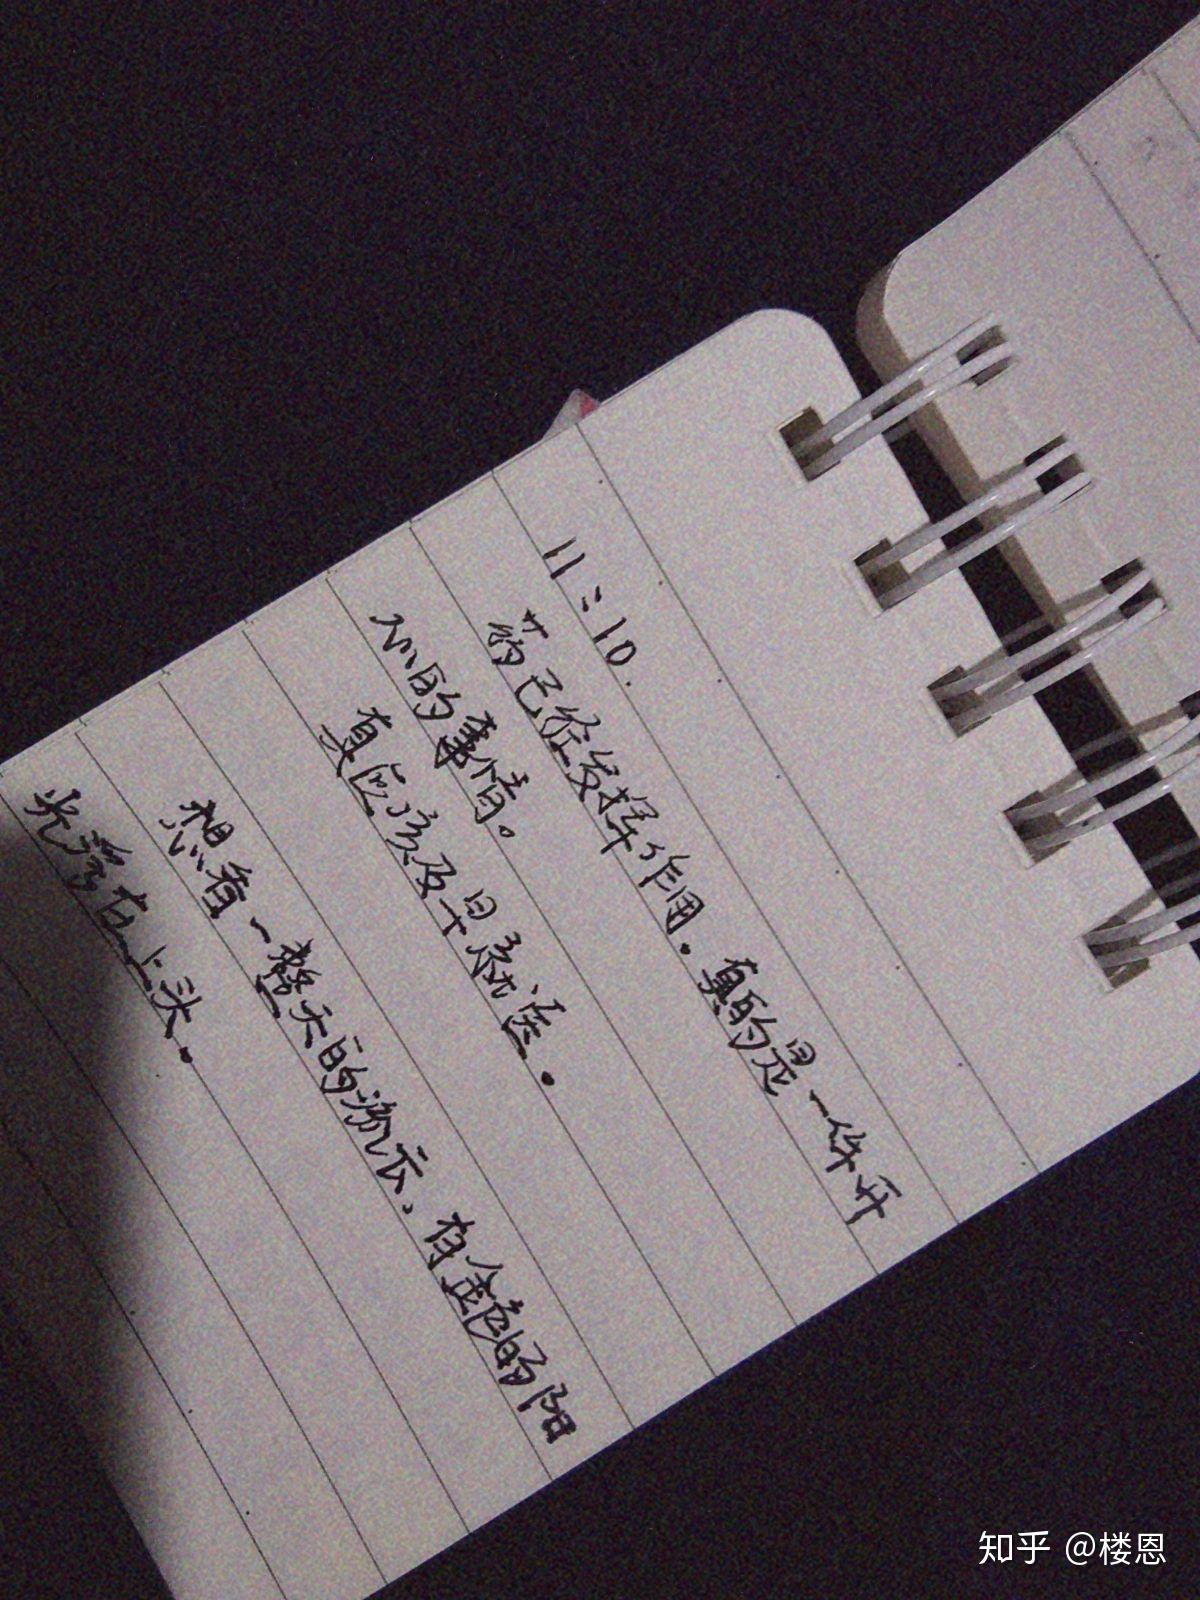 11:10.
药已经发挥作用.真的是一件开
心的事情。
真应该及早就医.
想看一整天的流云、有金色的阳
光浮在上头.
知乎 @楼恩